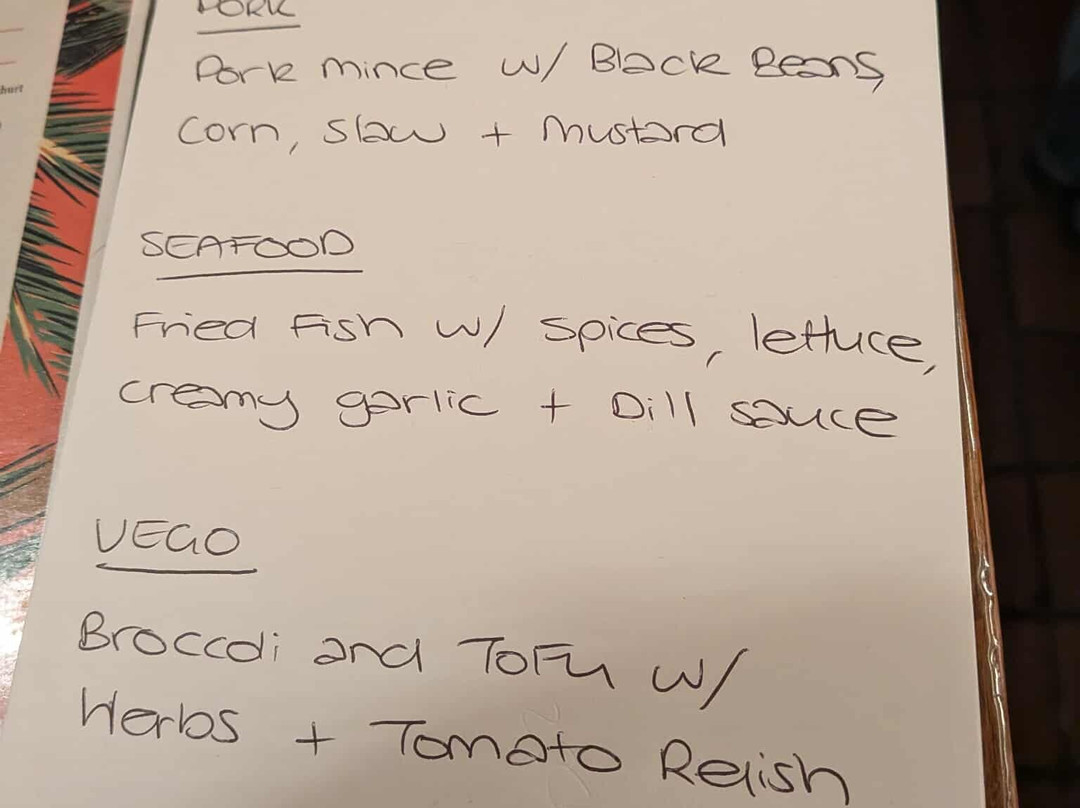 PORK
Pork mince w/ Black Beans,
Corn, Slaw + Mustard
SEAFOOD
Fried Fish w/ Spices, lettuce,
creamy garlic + Dill sauce
VEGO
Broccoli and Tofu w/
Herbs + Tomato Relish